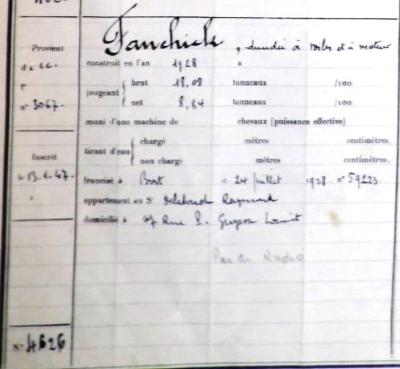 Fanchick, dundée à voiles et à moteur
Provient
construit en l'an 1928 à
jaugeant brut 18,08 tonneaux /100
n° 3067. net 8,84 tonneaux /100
muni d'une machine de chevaux (puissance effective)
tirant d'eau chargé mètres centimètres.
Inscrit non chargé mètres centimètres.
francisé à Brest le 24 juillet 1928. n° 59223
appartenant au Sr Raymond
domicilié à 67 Rue Lorient
Pas de Radio
N° 4626